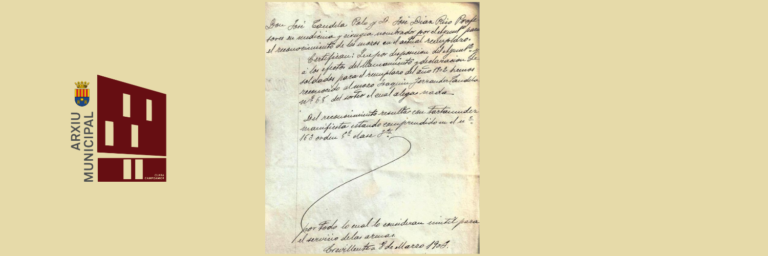 ARXIU
MUNICIPAL
Don José Candela Polo y D. José Dian Rico Profe-
sores en medicina y cirugia nombrados por el para
el reconocimiento de los mozos en el actual reemplazo.
Certifican: Que por disposicion de y
á los efectos del llamamiento y declaracion de
soldados para el reemplazo del año 1902 hemos
reconocido al mozo Joaquin Candela
nº 65 del sorteo el cual alega nada.
Del reconocimiento resulta con tartamudez
manifiesta estando comprendido en el nº
152 orden 5º clase 3ª
por todo lo cual lo consideran inutil para
el servicio de las armas.
Crevillente 9 de Marzo